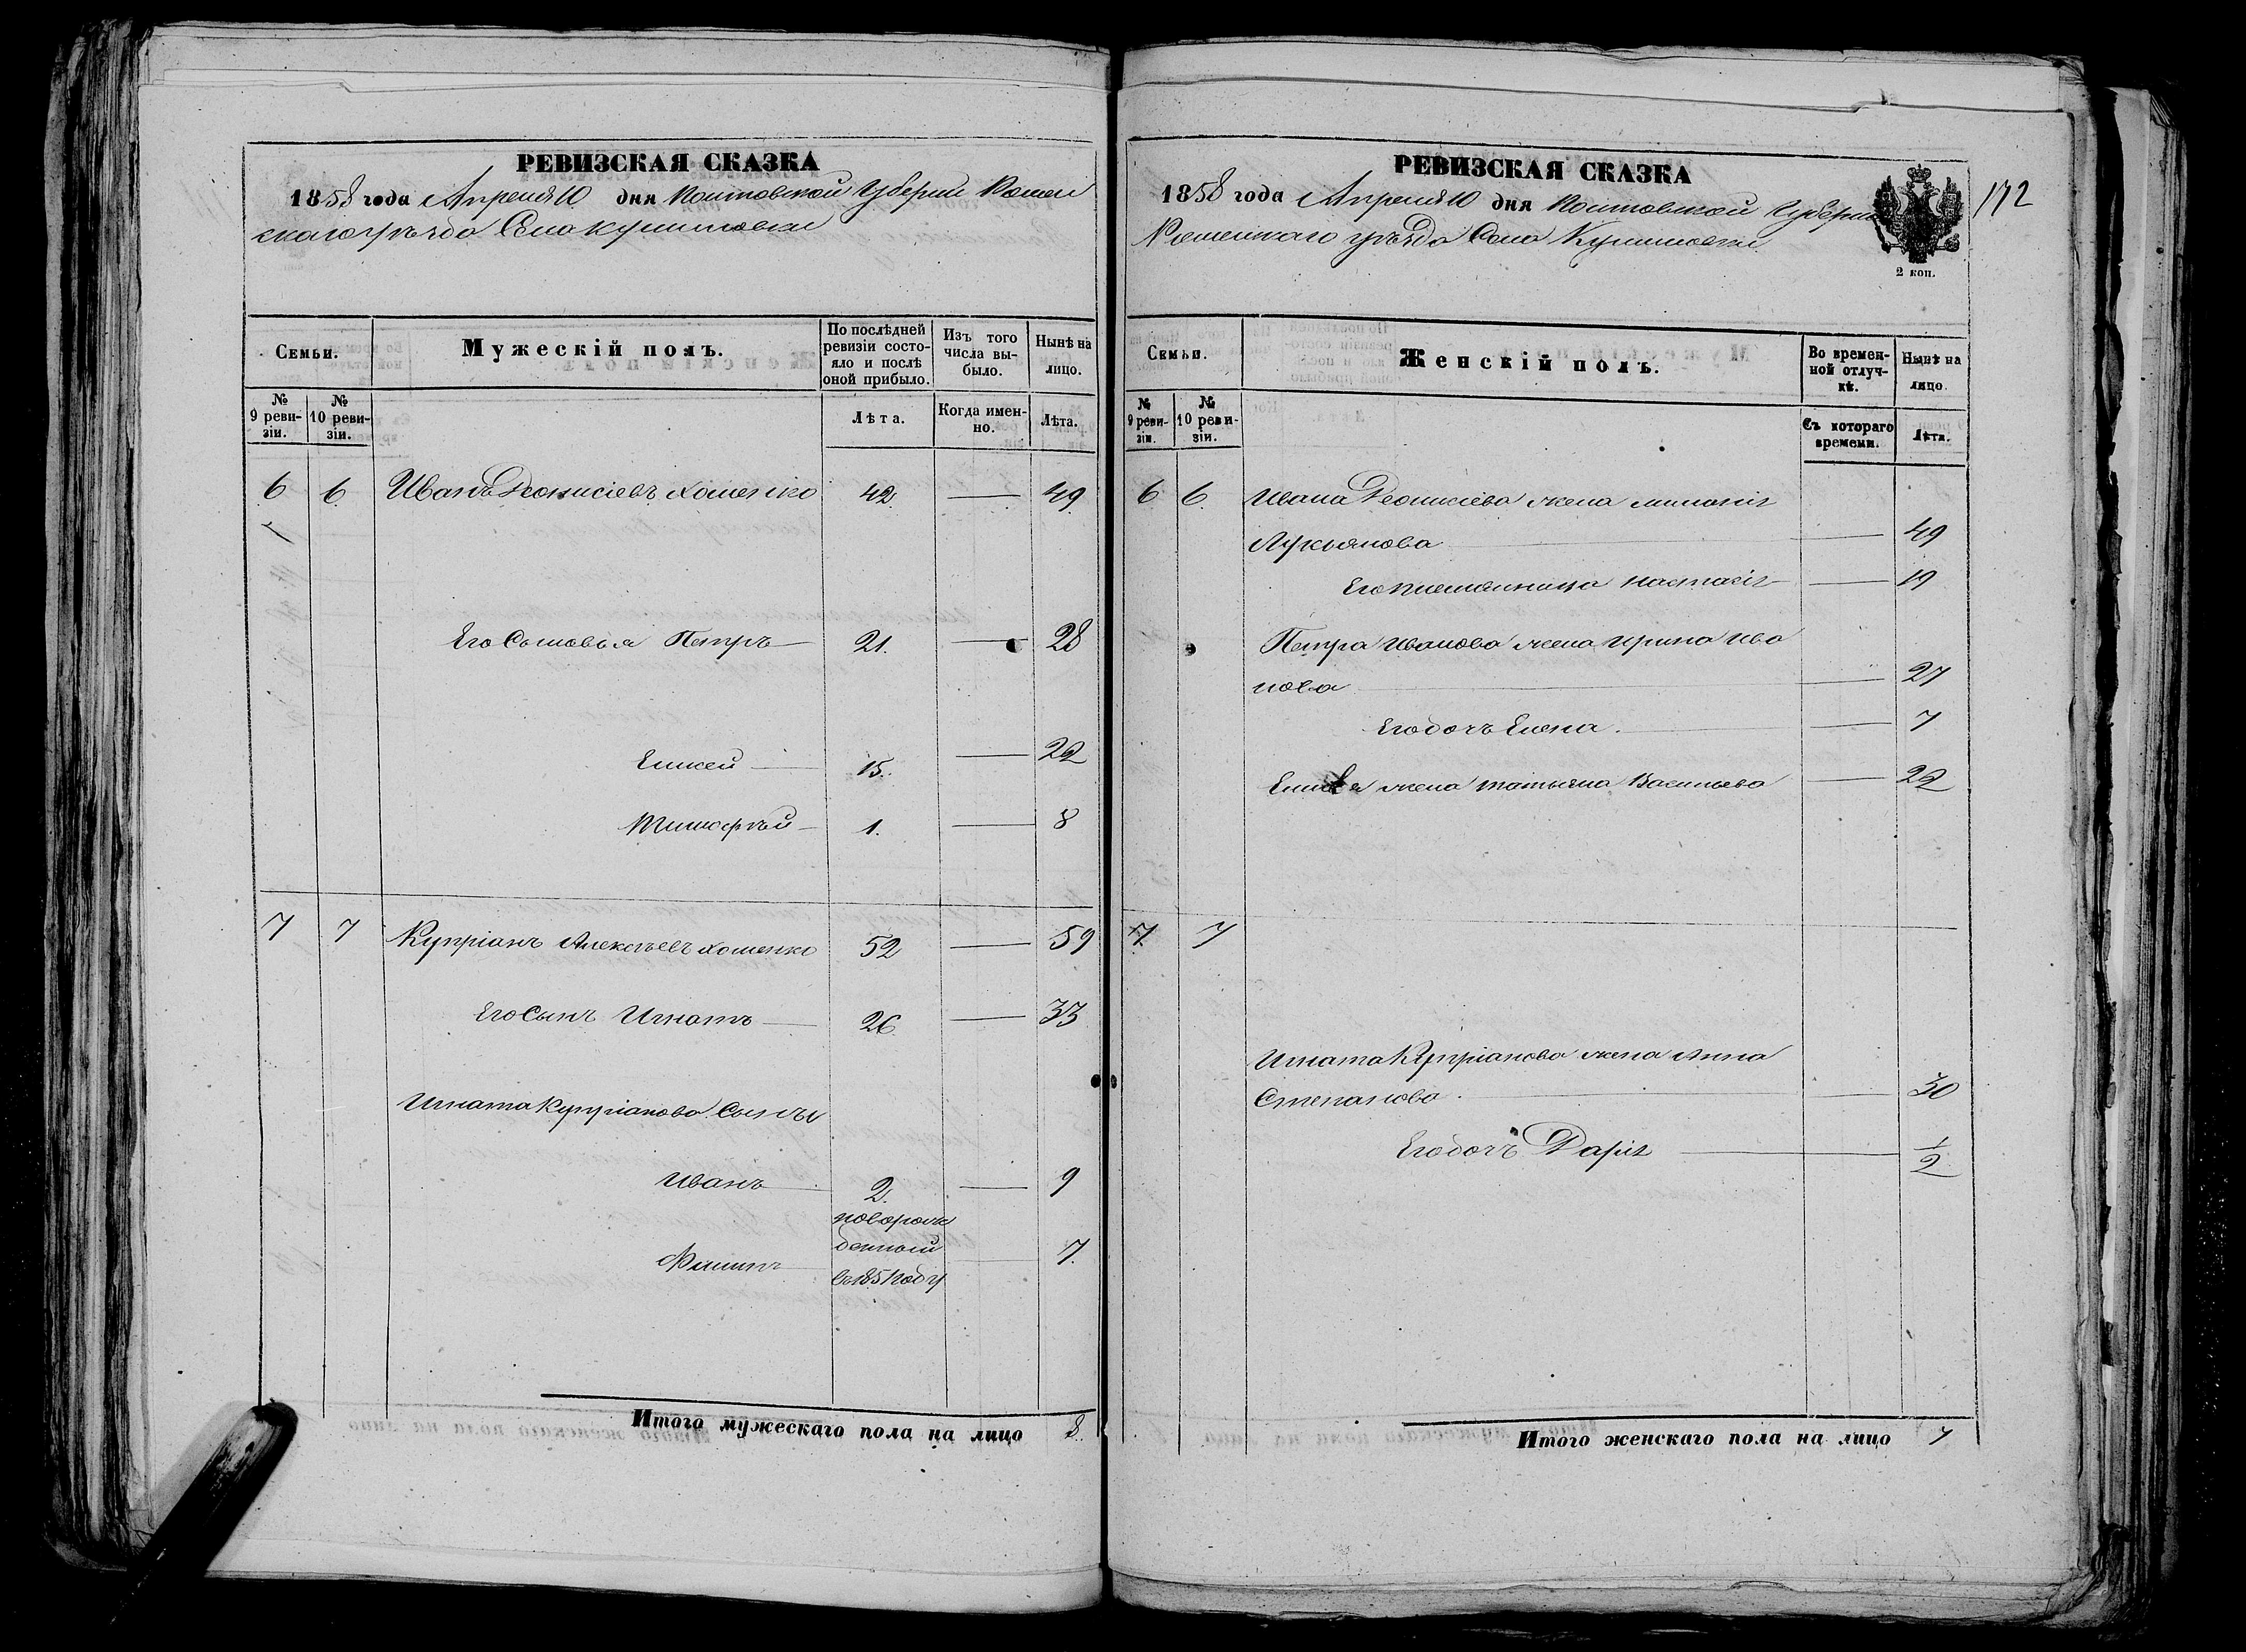 РЕВИЗСКАЯ СКАЗКА
1858 года Апреля 10 дня Полтавской Губерніи Ромен
скаго уѣзда Села
Семьи.
Мужескій полъ.
По послѣдней ревизіи состо-
яло и послѣ
оной прибыло.
Изъ того
числа вы-
было.
Нынѣ на
лицо.
№
9 реви-
зіи.
№
10 реви-
зіи.
Лѣта.
Когда имен-
но.
Лѣта.
6 6 Иванъ Деонисіевъ Хоменко 42. — 49
Его Сыновья Петръ — 21. — 28
Елисей — 15. — 22
Тимофѣй — 1. — 8
7 7 Купріанъ Алексѣевъ Хоменко 52 — 59
Его Сынъ Игнатъ — 26 — 33
Игната Купріанова Сыны
Иванъ — 2. — 9
новорож
денный
Филипъ — 7.
въ 1851 году
Итого мужескаго пола на лицо 8.
РЕВИЗСКАЯ СКАЗКА
1858 года Апреля 10 дня Полтавской Губерніи
Роменскаго уѣзда Села
172
2 коп.
Семьи.
Женскій полъ.
Во времен-
ной отлуч-
кѣ.
Нынѣ на
лицо.
№
9 реви-
зіи.
№
10 реви-
зіи.
Съ котораго
времени.
Лѣта.
6 6. Ивана Деонисіева жена
Лукьянова — 49
Его племянница Настасія — 19
Петра Иванова жена Ирина Ива
нова — 27
Его дочь Елена. — 7
Елисея жена Татьяна Васильева — 22
7. 7
Игната Купріанова жена Анна
Степанова. — 30
Его дочъ Дарія — 1/2
Итого женскаго пола на лицо 7